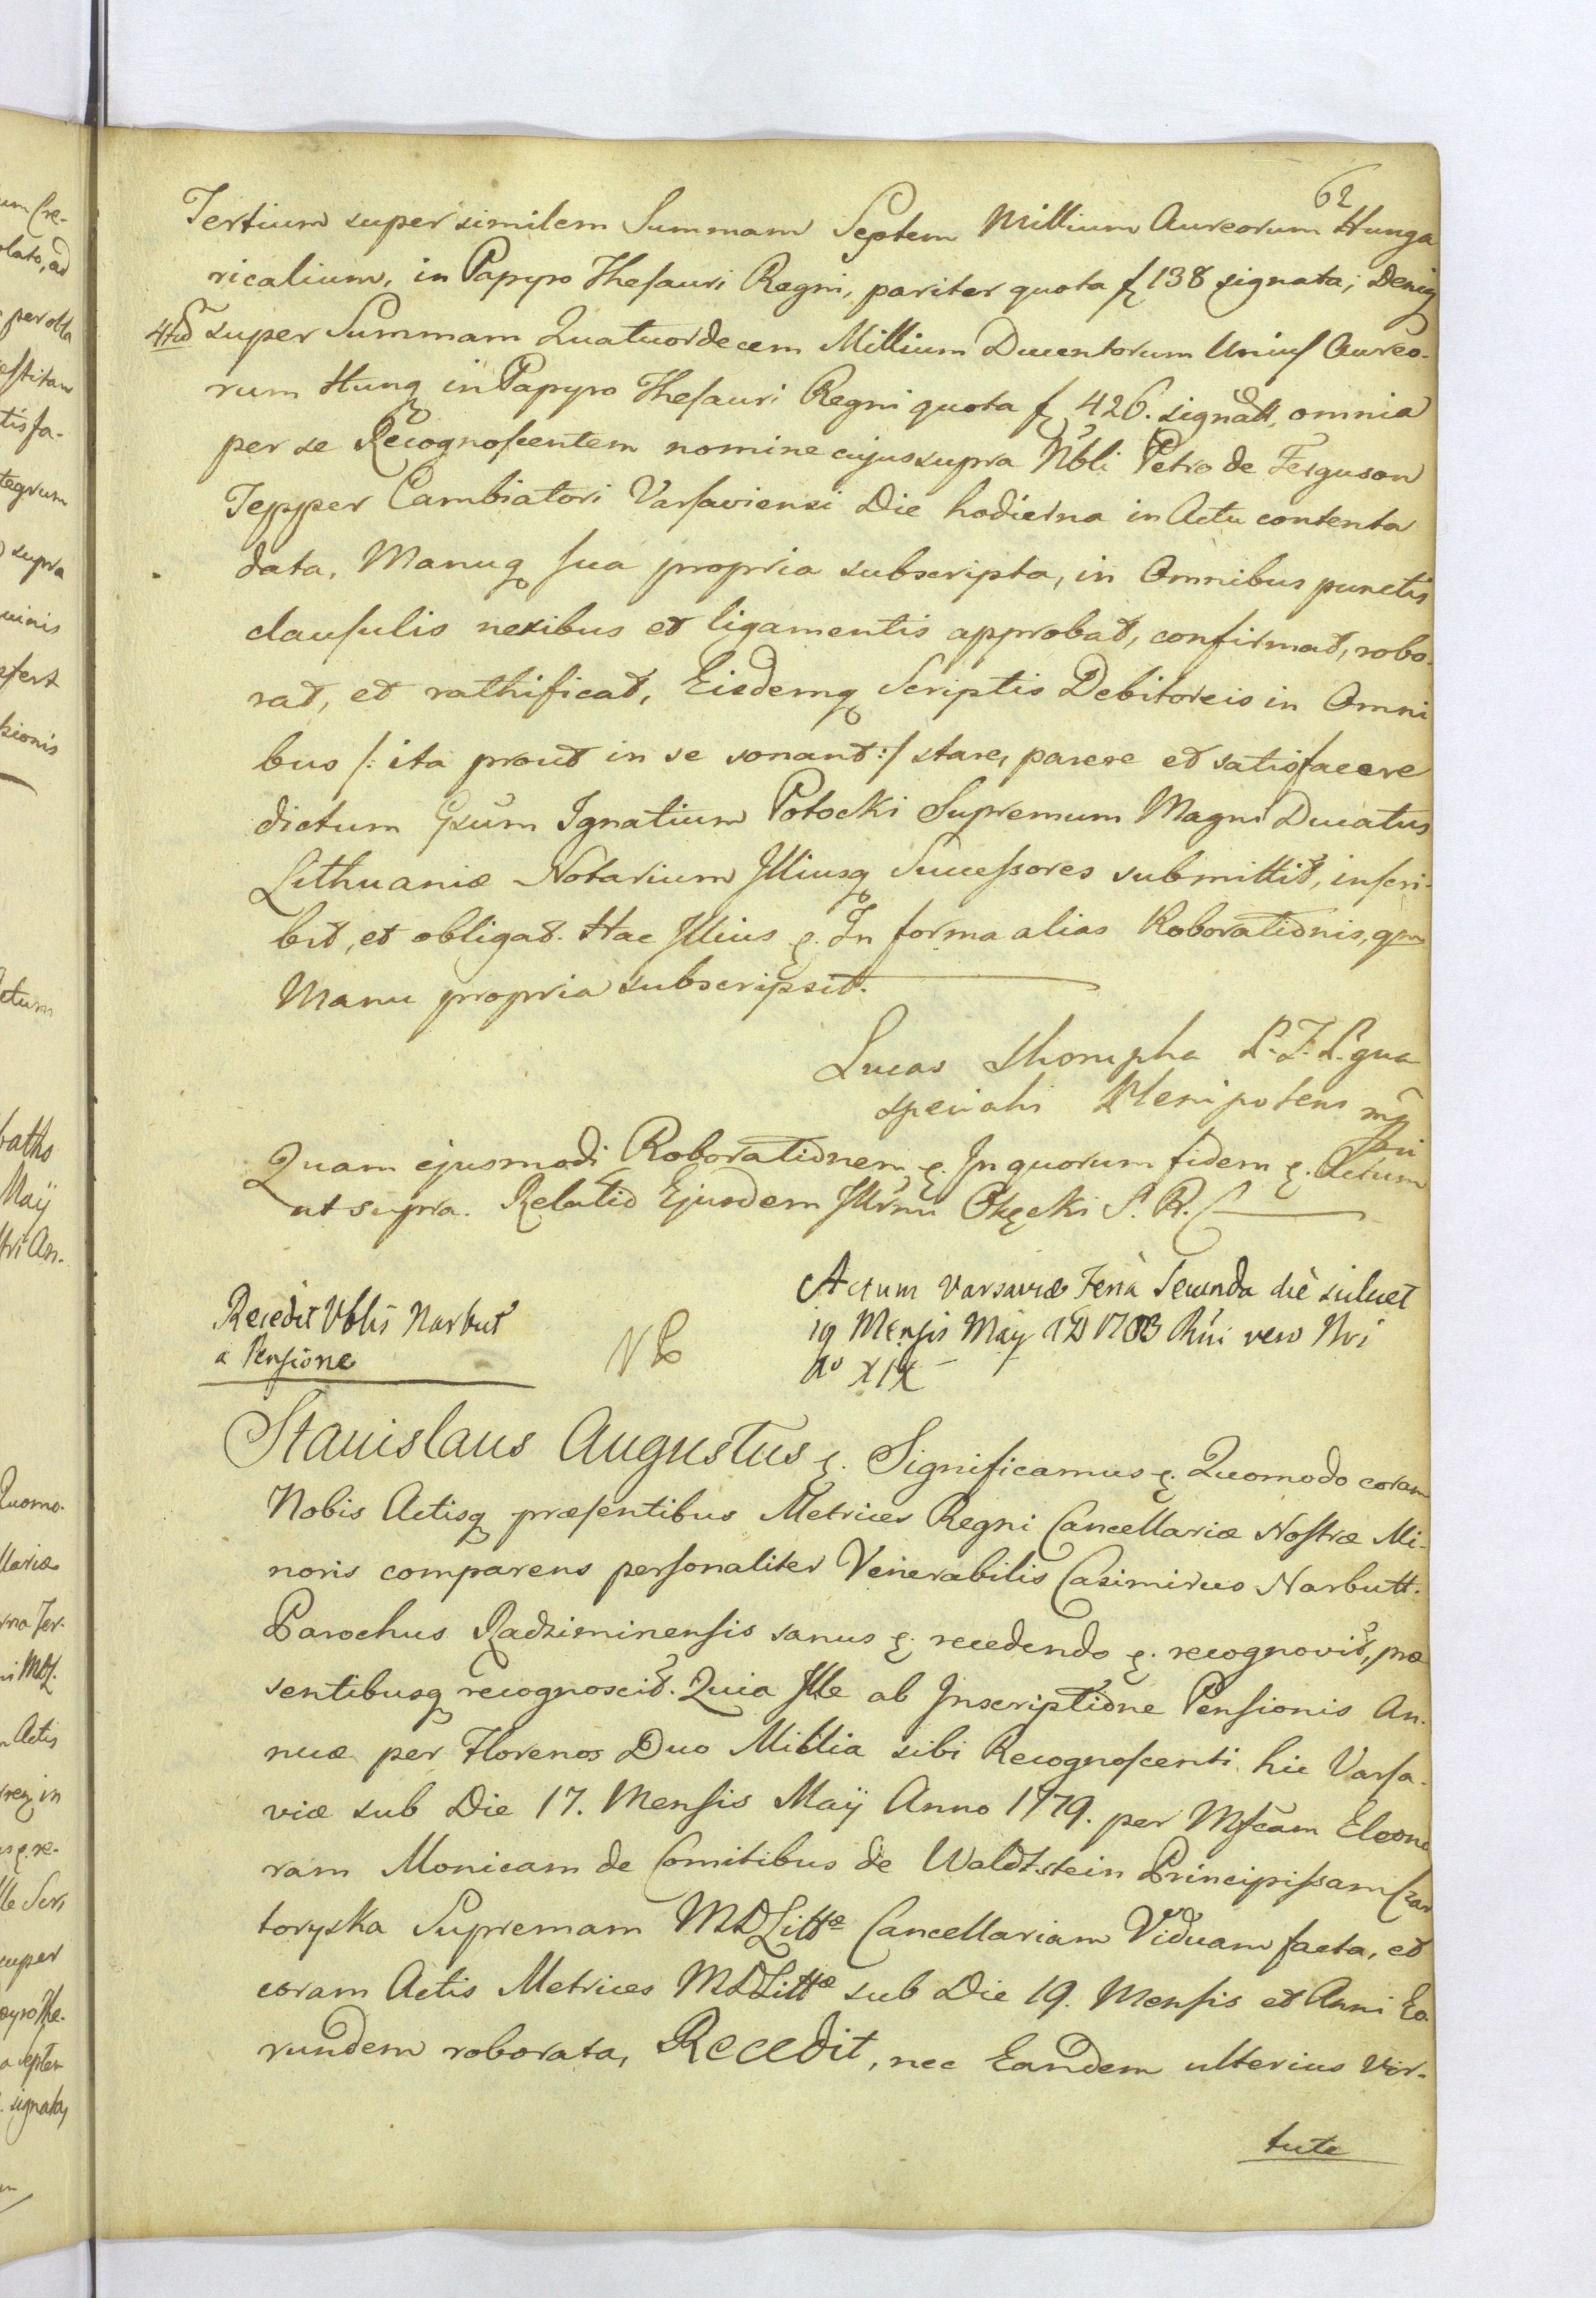 62
Tertium super similem Summam Septem Millium Aureorum Hunga
ricalium, in Papyro Thesauri Regni, pariter quota fl 138 signata; Deniq
4tũ super Summam Quatuordecem Millium Ducentorum Unius Aureo-
rum Hung in Papyro Thesauri Regni quota fl 426. signatt, omnia
per se Recognoscentem nomine cujus supra Nbli Petro de Ferguson
Tepper Cambiatori Varsaviensi Die hodierna in Actu contenta
data, Manuq sua propria subscripta, in Omnibus punctis
clausulis nexibus et ligamentis approbat, confirmat, robo-
rat, et rathificat, Eisdemq Scriptis Debitoreis in Omni
bus /: ita prout in se sonant :/ stare, parere et satisfacere
dictum Exũm Ignatium Potocki Supremum Magni Ducatus
Lithuaniæ Notarium Illiusq Successores submittit, inscri-
bit, et obligat. Hac Illius &. In forma alias Roborationis, qm
Manu propria subscripsit.
Lucas P. T. P. qua
specialis Plenipotens mp
Quam ejusmodi Roborationem &. In quorum fidem &. Actum
ut supra. Relatio Ejusdem Illrmi Okęcki S. R.
Recedit Vblis Narbut
a Pensione
Actum Varsaviæ Feria Secunda die scilicet
19 Mensis Maÿ AD 1783 Rni vero Nri
Ao XIX
Stanislaus Augustus &. Significamus &. Quomodo coram
Nobis Actisq præsentibus Metrices Regni Cancellariæ Nostræ Mi-
noris comparens personaliter Venerabilis Casimirus Narbutt.
Parochus Radziminensis sanus &. recedendo &. recognovit, præ
sentibusq recognoscit. Quia Ille ab Inscriptione Pensionis An-
nuæ per Florenos Duo Millia sibi Recognoscenti hic Varsa-
viæ sub Die 17. Mensis Maÿ Anno 1779. per Mfcam Eleono
ram Monicam de Comitibus de Waldstein Principissam Czar
toryska Supremam MDLittæ Cancellariam Viduam facta, et
coram Actis Metrices MDLittæ sub Die 19. Mensis et Anni Eo-
rundem roborata, Recedit, nec Eandem ulterius vir-
tute